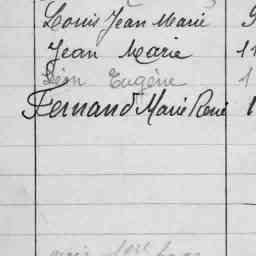 Louis Jean Marie
Jean Marie 11
Léon Eugène 1
Fernand Marie René 1